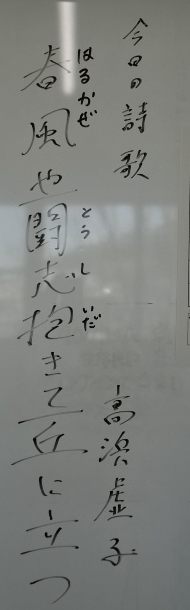 今日の詩歌
はるかぜ とうし いだ
春風や闘志抱きて丘に立つ
高浜虚子